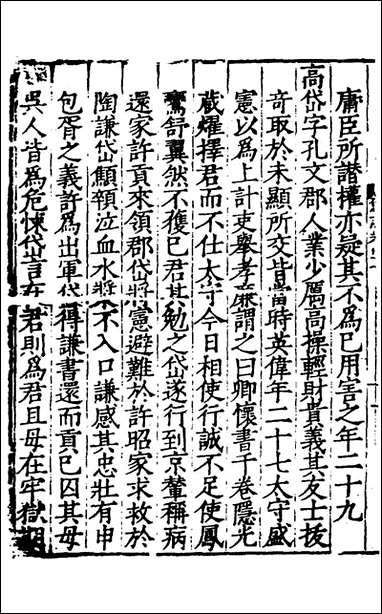 庸臣所譖權亦疑其不爲已用害之年二十九
高岱字孔文郡人業少厲高操輕財貴義其友士拔
奇取於未顯所交皆當時英偉年二十七太守盛
憲以爲上計吏舉孝廉謂之曰卿懷書于卷隱光
藏燿擇君而不仕太守今日相使行誠不足使鳳
鸞舒翼然不獲已君其勉之岱遂行到京輦稱病
還家許貢來領郡岱將憲避難於許昭家求救於
陶謙岱顦顇泣血水漿不入口謙感其忠壯有申
包胥之義許爲出軍岱得謙書還而貢已囚其母
吳人皆爲危悚岱言在君則爲君且母在牢獄期